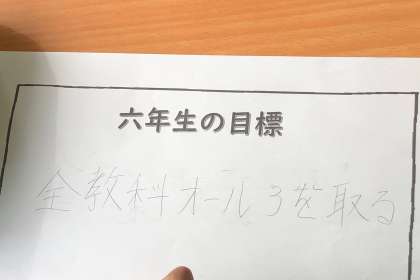 六年生の目標
全教科オール3を取る